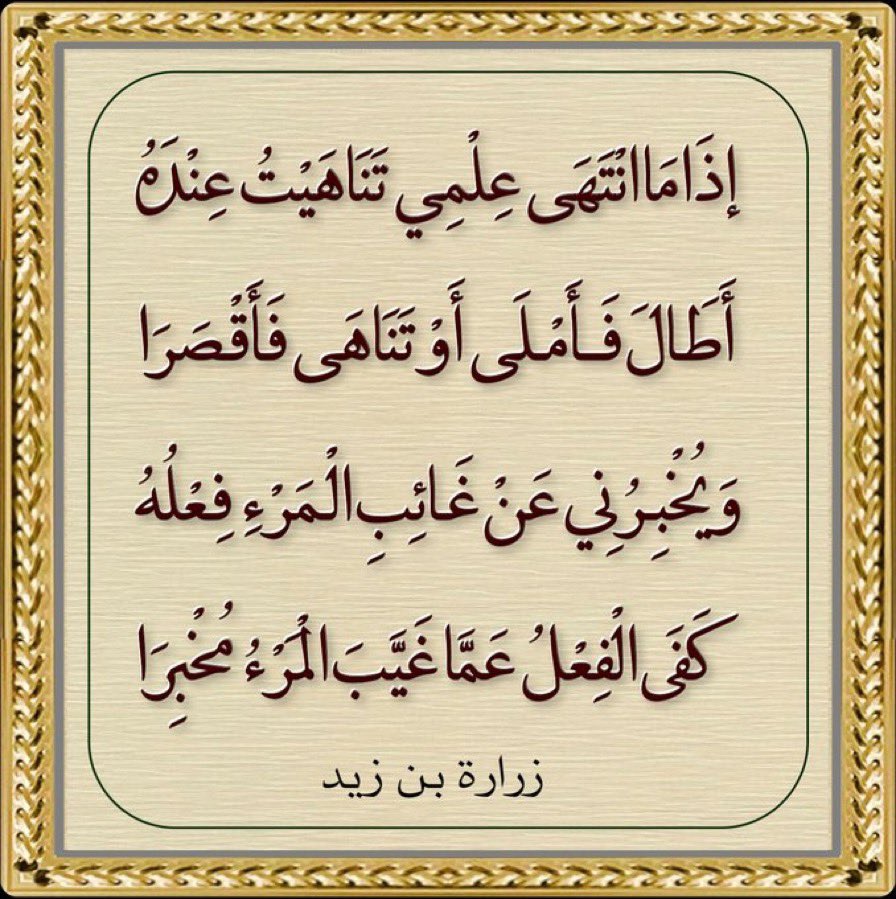 إِذَا مَا انْتَهَى عِلْمِي تَنَاهَيْتُ عِنْدَهُ
أَطَالَ فَأَمْلَى أَوْ تَنَاهَى فَأَقْصَرَا
وَيُخْبِرُنِي عَنْ غَائِبِ الْمَرْءِ فِعْلُهُ
كَفَى الْفِعْلُ عَمَّا غَيَّبَ الْمَرْءُ مُخْبِرَا
زرارة بن زيد